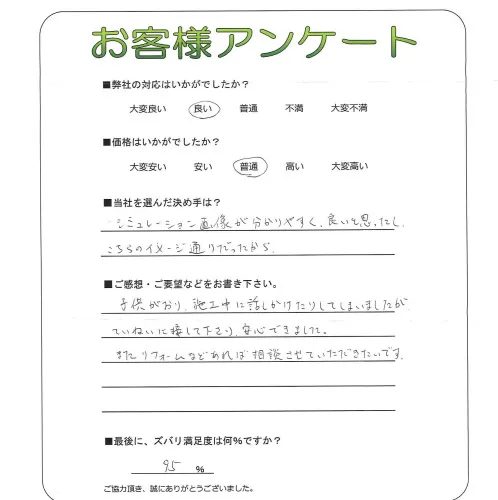 お客様アンケート
■弊社の対応はいかがでしたか？
大変良い 良い 普通 不満 大変不満
■価格はいかがでしたか？
大変安い 安い 普通 高い 大変高い
■当社を選んだ決め手は？
シミュレーション画像が分かりやすく、良いと思ったし、
こちらのイメージ通りだったから。
■ご感想・ご要望などをお書き下さい。
子供がおり、施工中に話しかけたりしてしまいましたが、
ていねいに接して下さり、安心できました。
またリフォームなどあれば相談させていただきたいです。
■最後に、ズバリ満足度は何%ですか？
95 %
ご協力頂き、誠にありがとうございました。